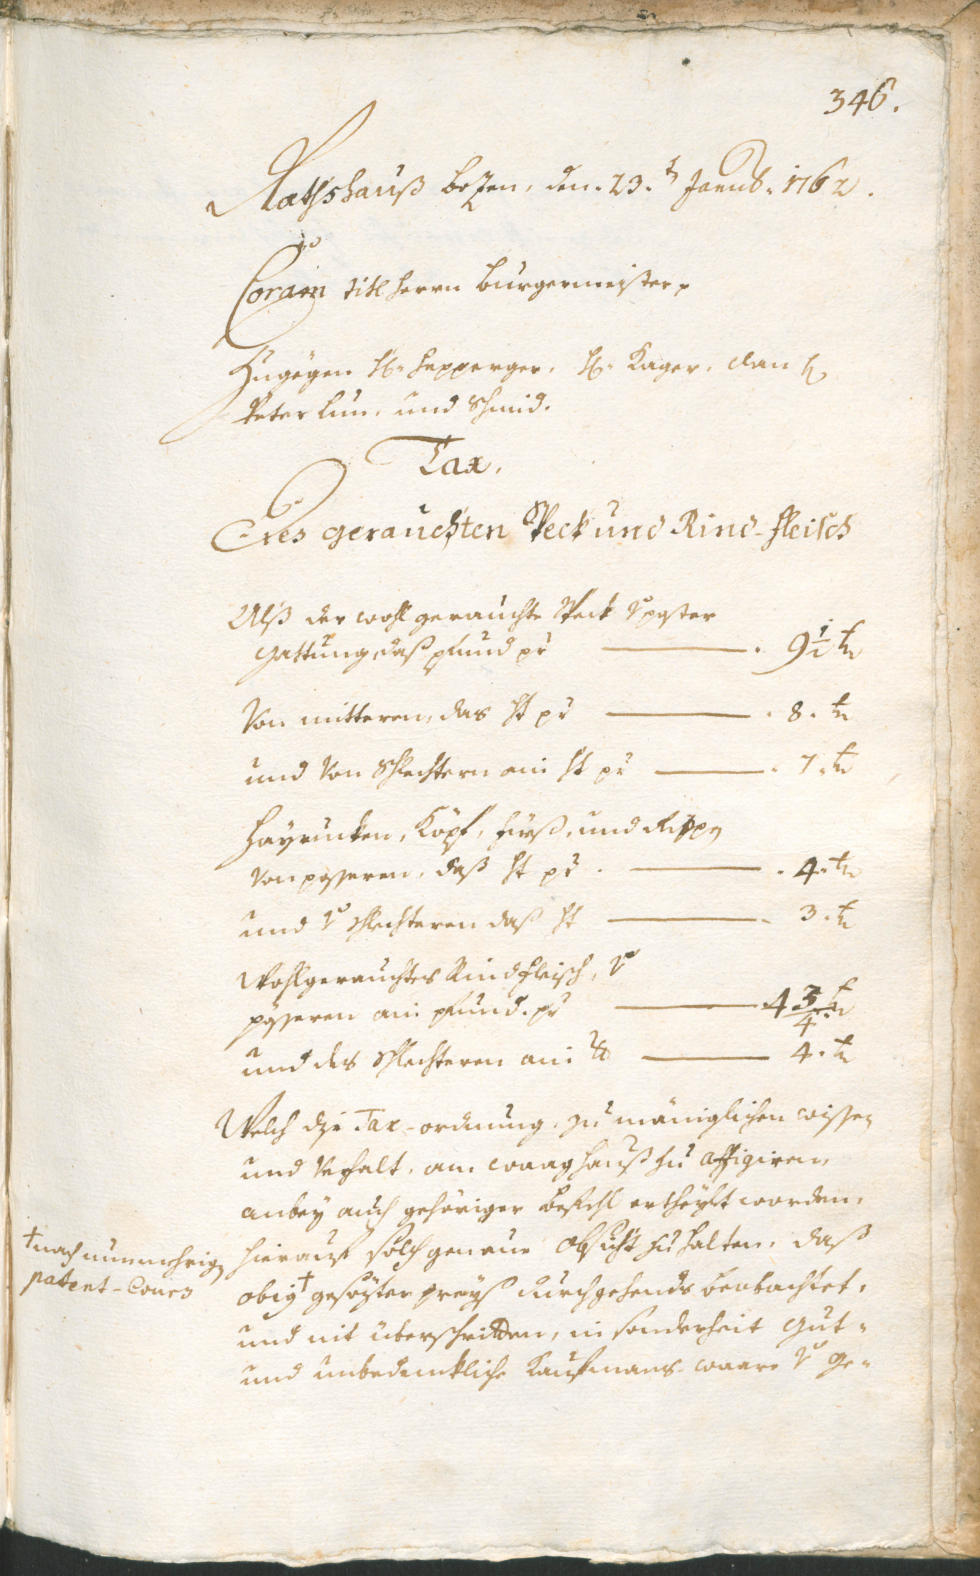 346.
Rathshauß bozen, den 23.ten Jenns. 1762.
Coram titl herrn burgermeister,
Zugegen H: hepperger, H: Kager, dan H:
Peter Lun, und Schmid.
Tax.
Des gerauchten Speck und Rind-fleisch
Alß der wohl gerauchte Speck v: poster
gattung, daß pfund pr 9 1/2 kr
Von mitteren, das lb pr 8. kr
und von Schlechtern ain lb pr 7. kr
hayrucken, Köpf, füeß, und Rippen
von pesseren, daß lb pr 4. kr
und v: schlechteren daß lb 3. kr
Wohlgerauchtes Rindfleisch, v:
pesseren ain pfund pr 4 3/4 kr
und des schlechteren ain lb 4. kr
Welch dise Tax-ordnung, zu mäniglichen wissen
und verhalt, am waaghauß zu affigiren,
anbey auch gehöriger befehl ertheylt worden,
hierauf solch genaue obsicht zu halten, daß
obig † gesözter preyß durchgehends beobachtet,
und nit überschritten, in sonderheit gut-
und unbedenkliche Kaufmans-waare v: ge-
† nach nunmehrigen
patent-Cours